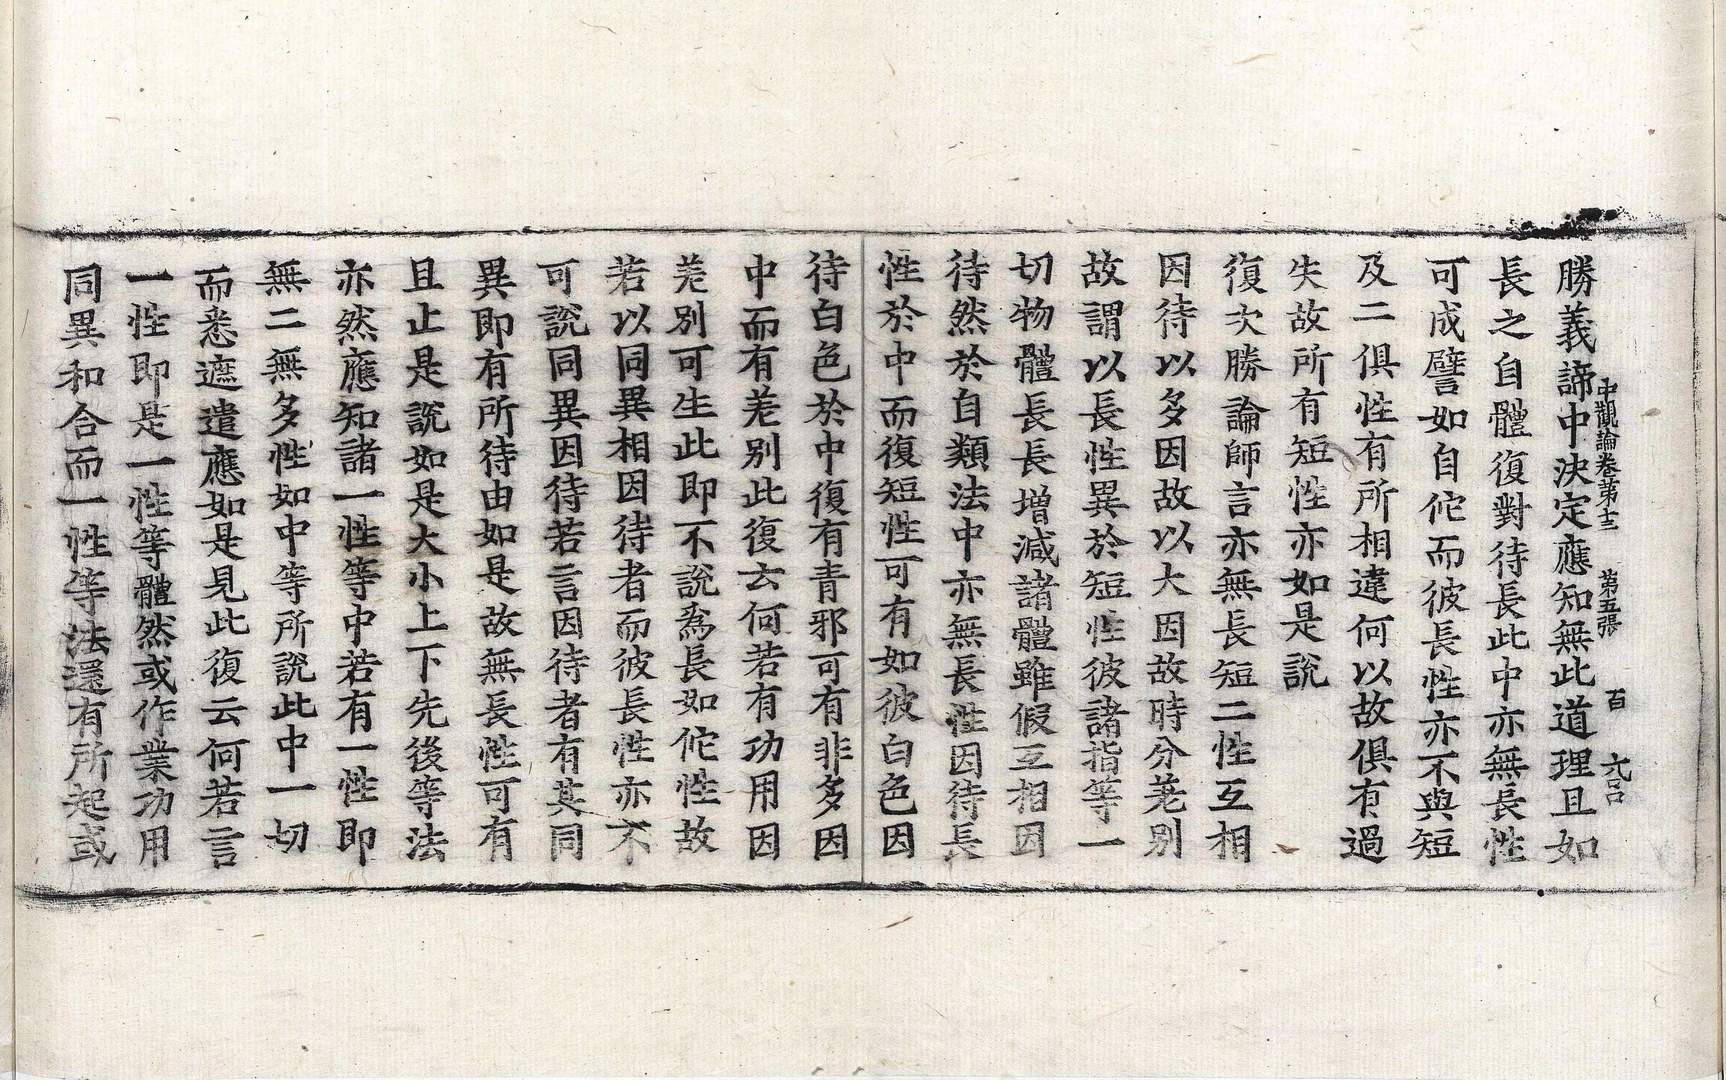 中觀論卷第十三 第五張 百
勝義諦中決定應知無此道理且如
長之自體復對待長此中亦無長性
可成譬如自佗而彼長性亦不與短
及二俱性有所相違何以故俱有過
失故所有短性亦如是說
復次勝論師言亦無長短二性互相
因待以多因故以大因故時分差別
故謂以長性異於短性彼諸指等一
切物體長長增減諸體雖假互相因
待然於自類法中亦無長性因待長
性於中而復短性可有如彼白色因
待白色於中復有青邪可有非多因
中而有差別此復云何若有功用因
差別可生此即不說為長如佗性故
若以同異相因待者而彼長性亦不
可說同異因待若言因待者有其同
異即有所待由如是故無長性可有
且止是說如是大小上下先後等法
亦然應知諸一性等中若有一性即
無二無多性如中等所說此中一切
而悉遮遣應如是見此復云何若言
一性即是一性等體然或作業功用
同異和合而一性等法還有所起或